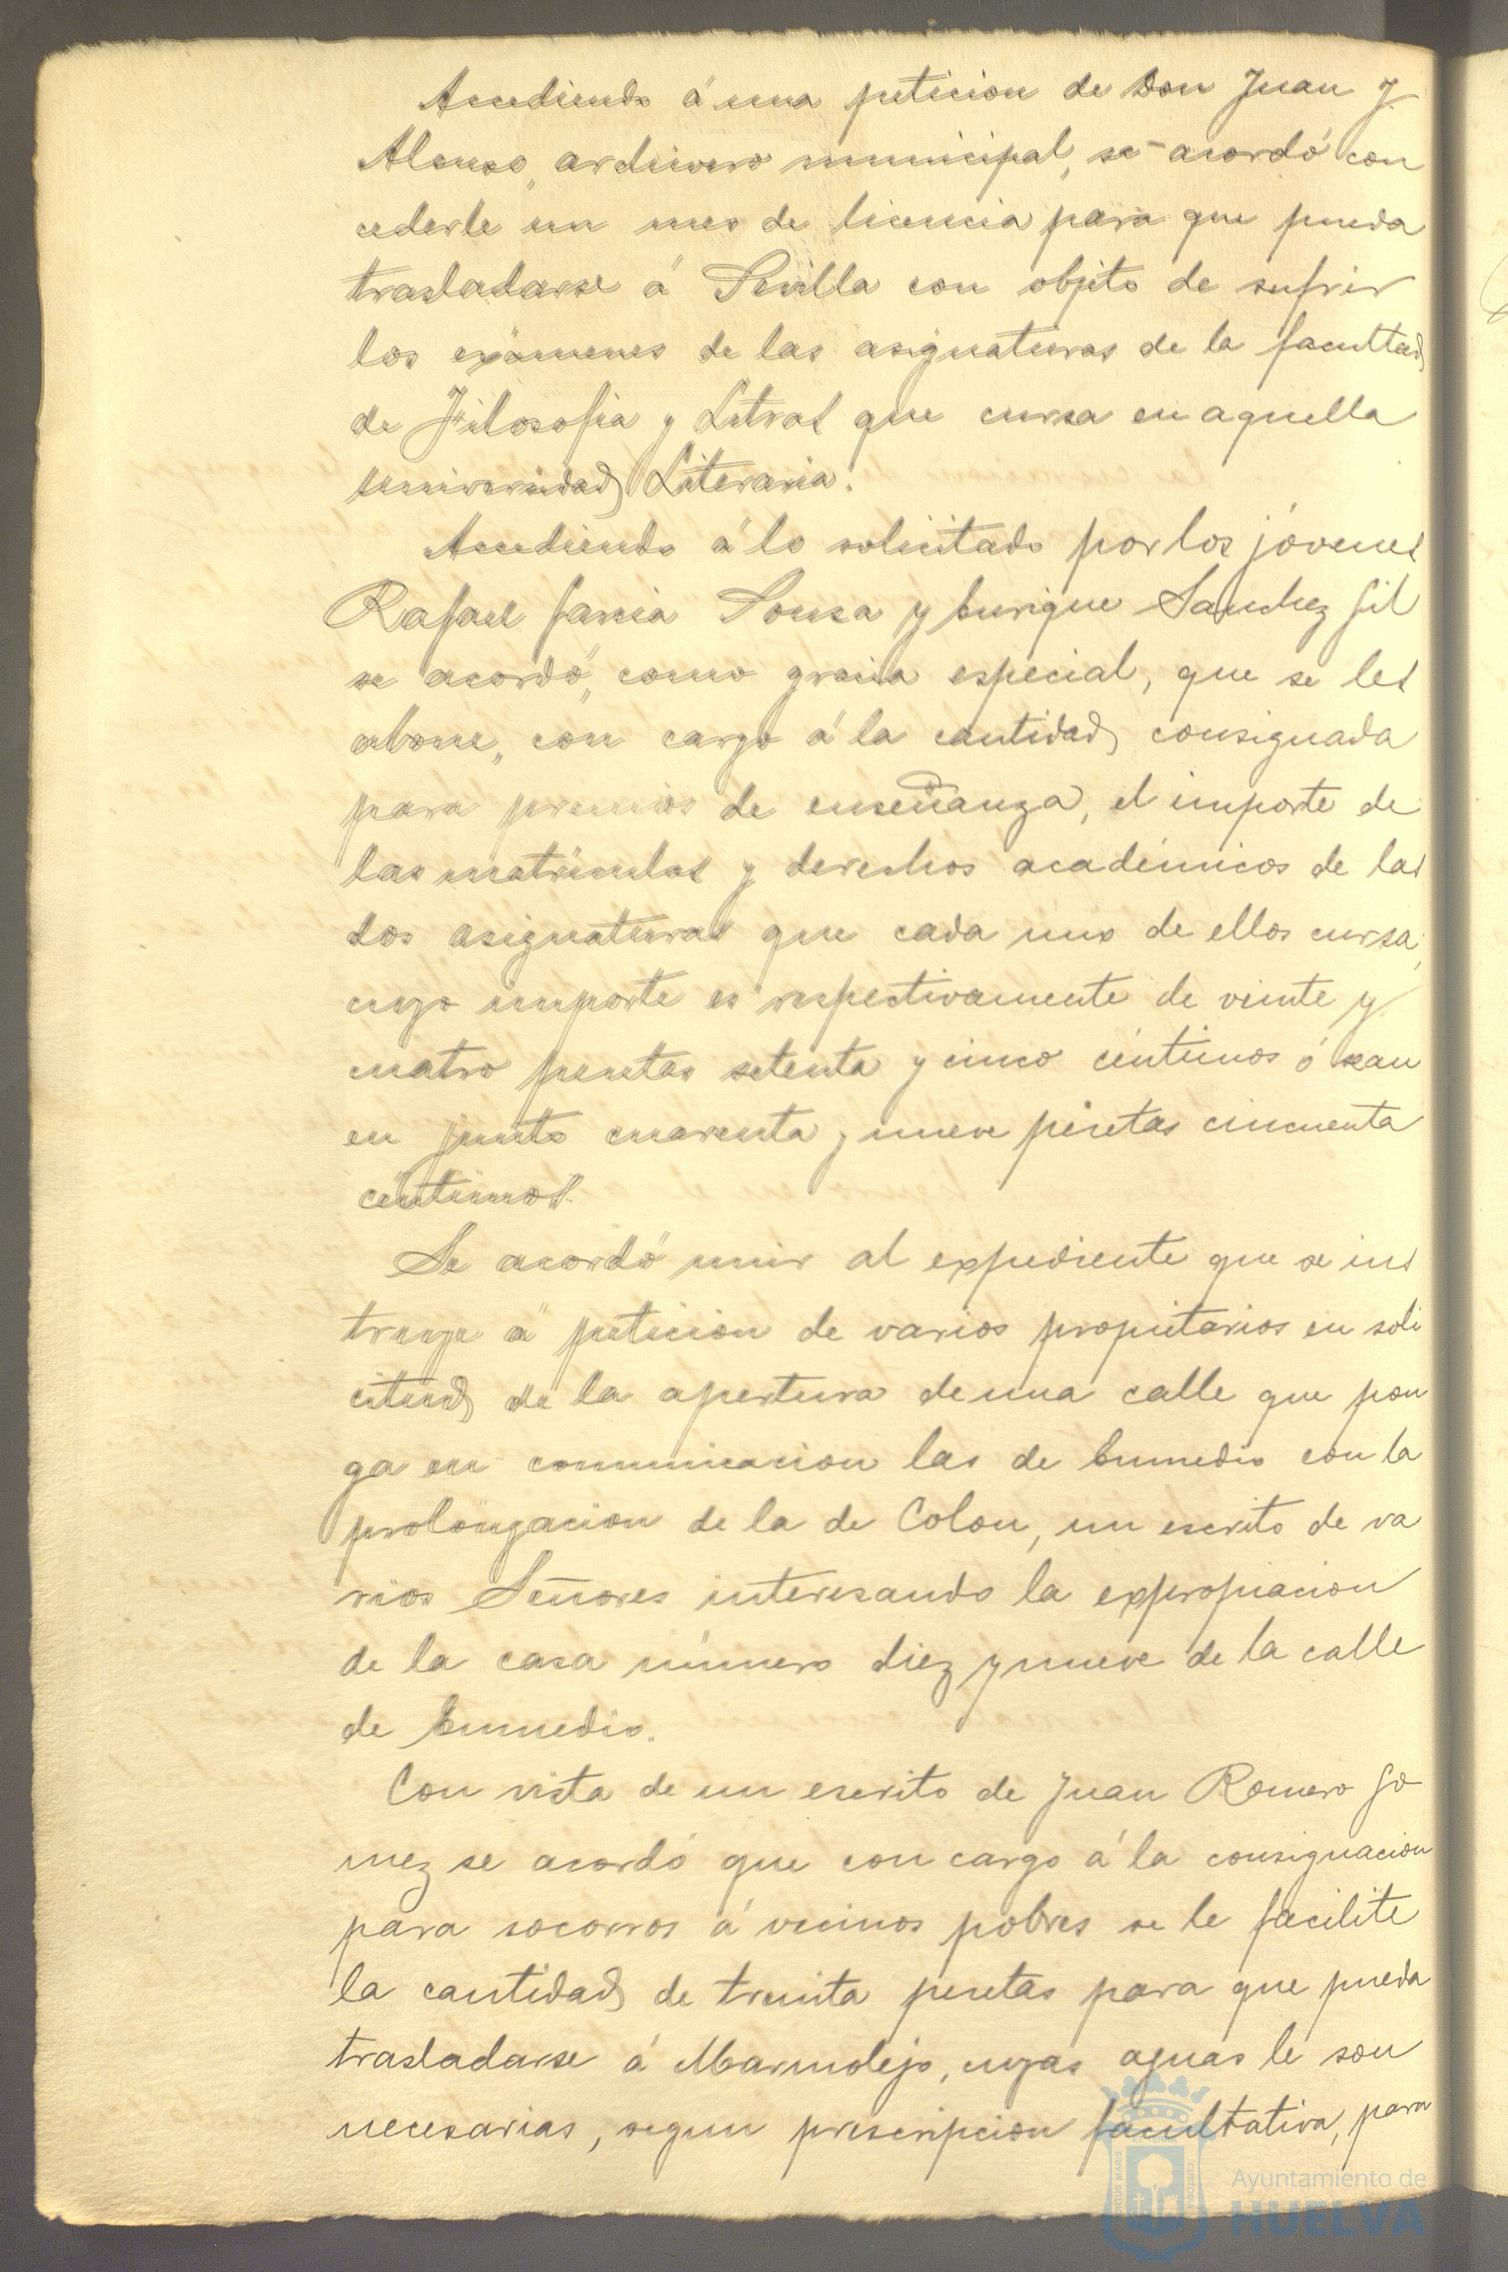 Accediendo á una peticion de Don Juan J.
Alonso, archivero municipal, se acordó con
cederle un mes de licencia para que pueda
trasladarse á Sevilla con objeto de sufrir
los exámenes de las asignaturas de la facultad
de Filosofia y Letras que cursa en aquella
universidad Literaria.
Accediendo á lo solicitado por los jóvenes
Rafael Garcia Sousa y Enrique Sanchez Gil
se acordó, como gracia especial, que se les
abone, con cargo á la cantidad consignada
para premios de enseñanza, el importe de
las matriculas y derechos académicos de las
dos asignaturas que cada uno de ellos cursa,
cuyo importe es respectivamente de veinte y
cuatro pesetas setenta y cinco céntimos ó sean
en junto cuarenta y nueve pesetas cincuenta
céntimos.
Se acordó unir al expediente que se ins
truye á peticion de varios propietarios en soli
citud de la apertura de una calle que pon
ga en comunicacion las de Enmedio con la
prolongacion de la de Colon, un escrito de va
rios Señores interesando la expropiacion
de la casa número diez y nueve de la calle
de Enmedio.
Con vista de un escrito de Juan Romero Go
mez se acordó que con cargo á la consignacion
para socorros á vecinos pobres se le facilite
la cantidad de treinta pesetas para que pueda
trasladarse á Marmolejo, cuyas aguas le son
necesarias, segun prescripcion facultativa, para
Ayuntamiento de
HUELVA